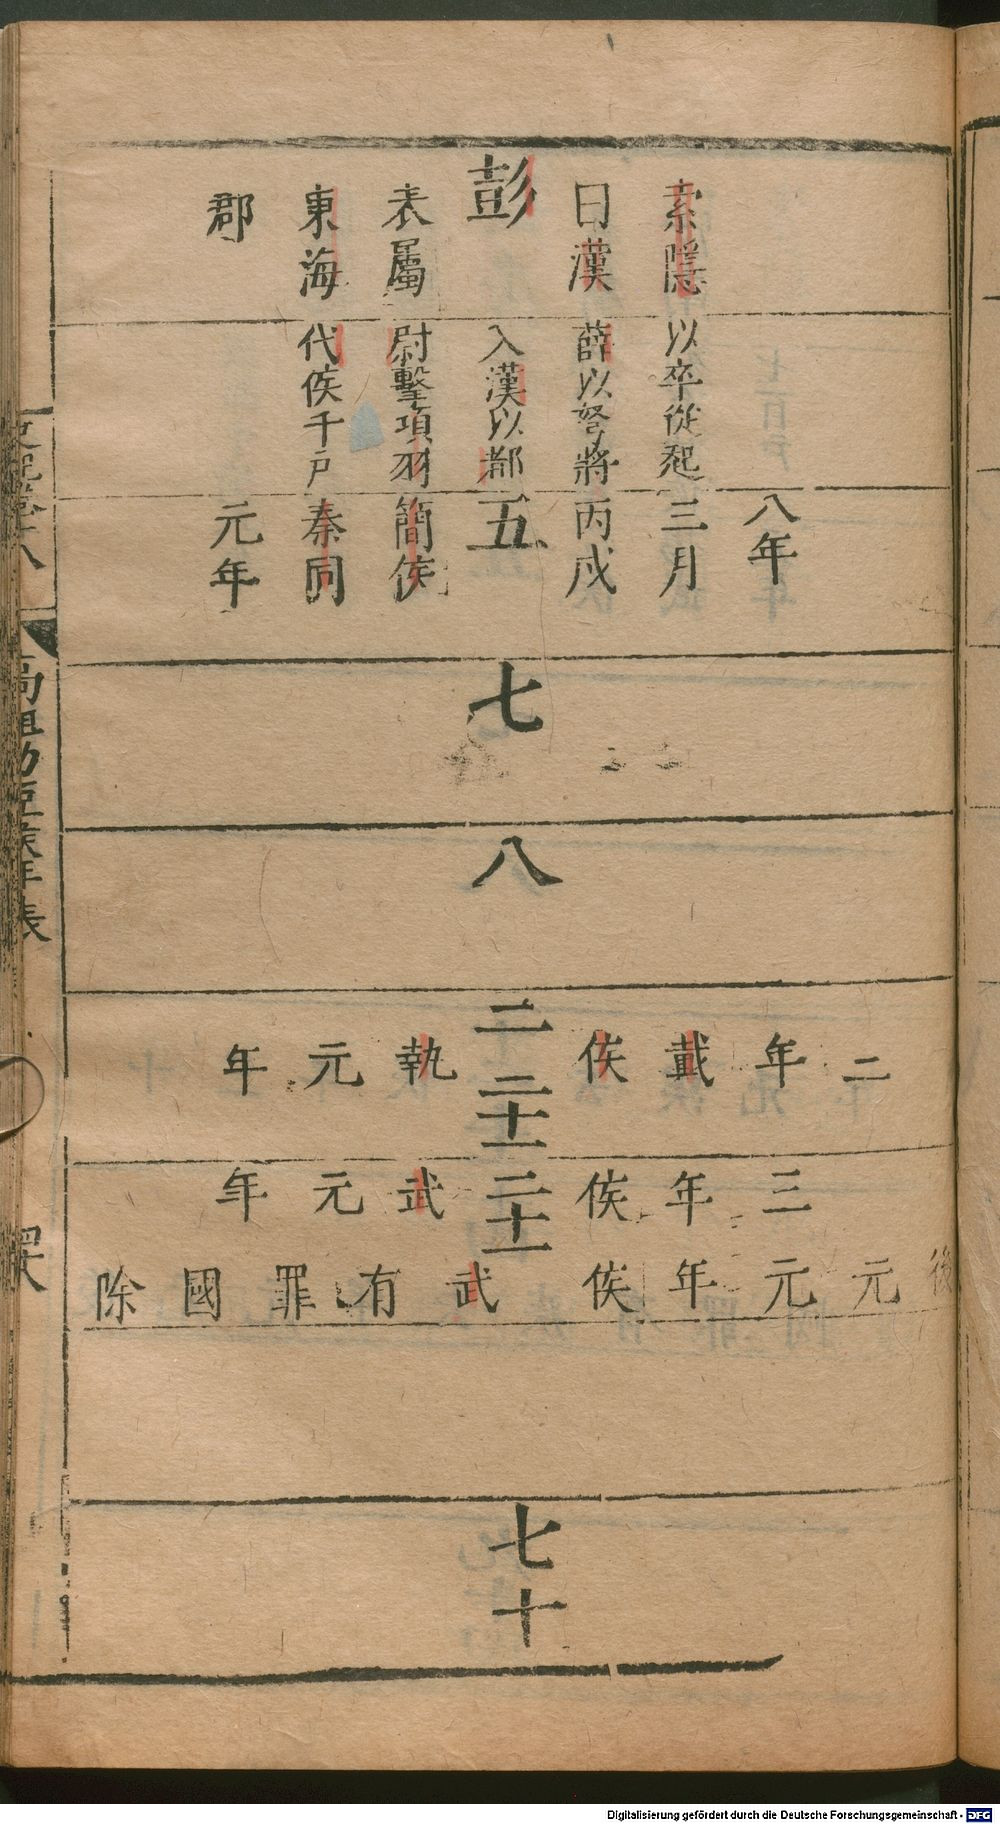 索隱
曰漢
彭
表屬
東海
郡
以卒從起
薛以弩將
入漢以都
尉擊項羽
代侯千戶
八年
三月
丙戌
五
簡侯
秦同
元年
七
八
二年戴侯
二
二十一
執元年
三年侯
二十一
武元年
後元元年侯武有罪國除
七十
史記卷十八
高祖功臣侯年表
Digitalisierung gefördert durch die Deutsche Forschungsgemeinschaft - DFG